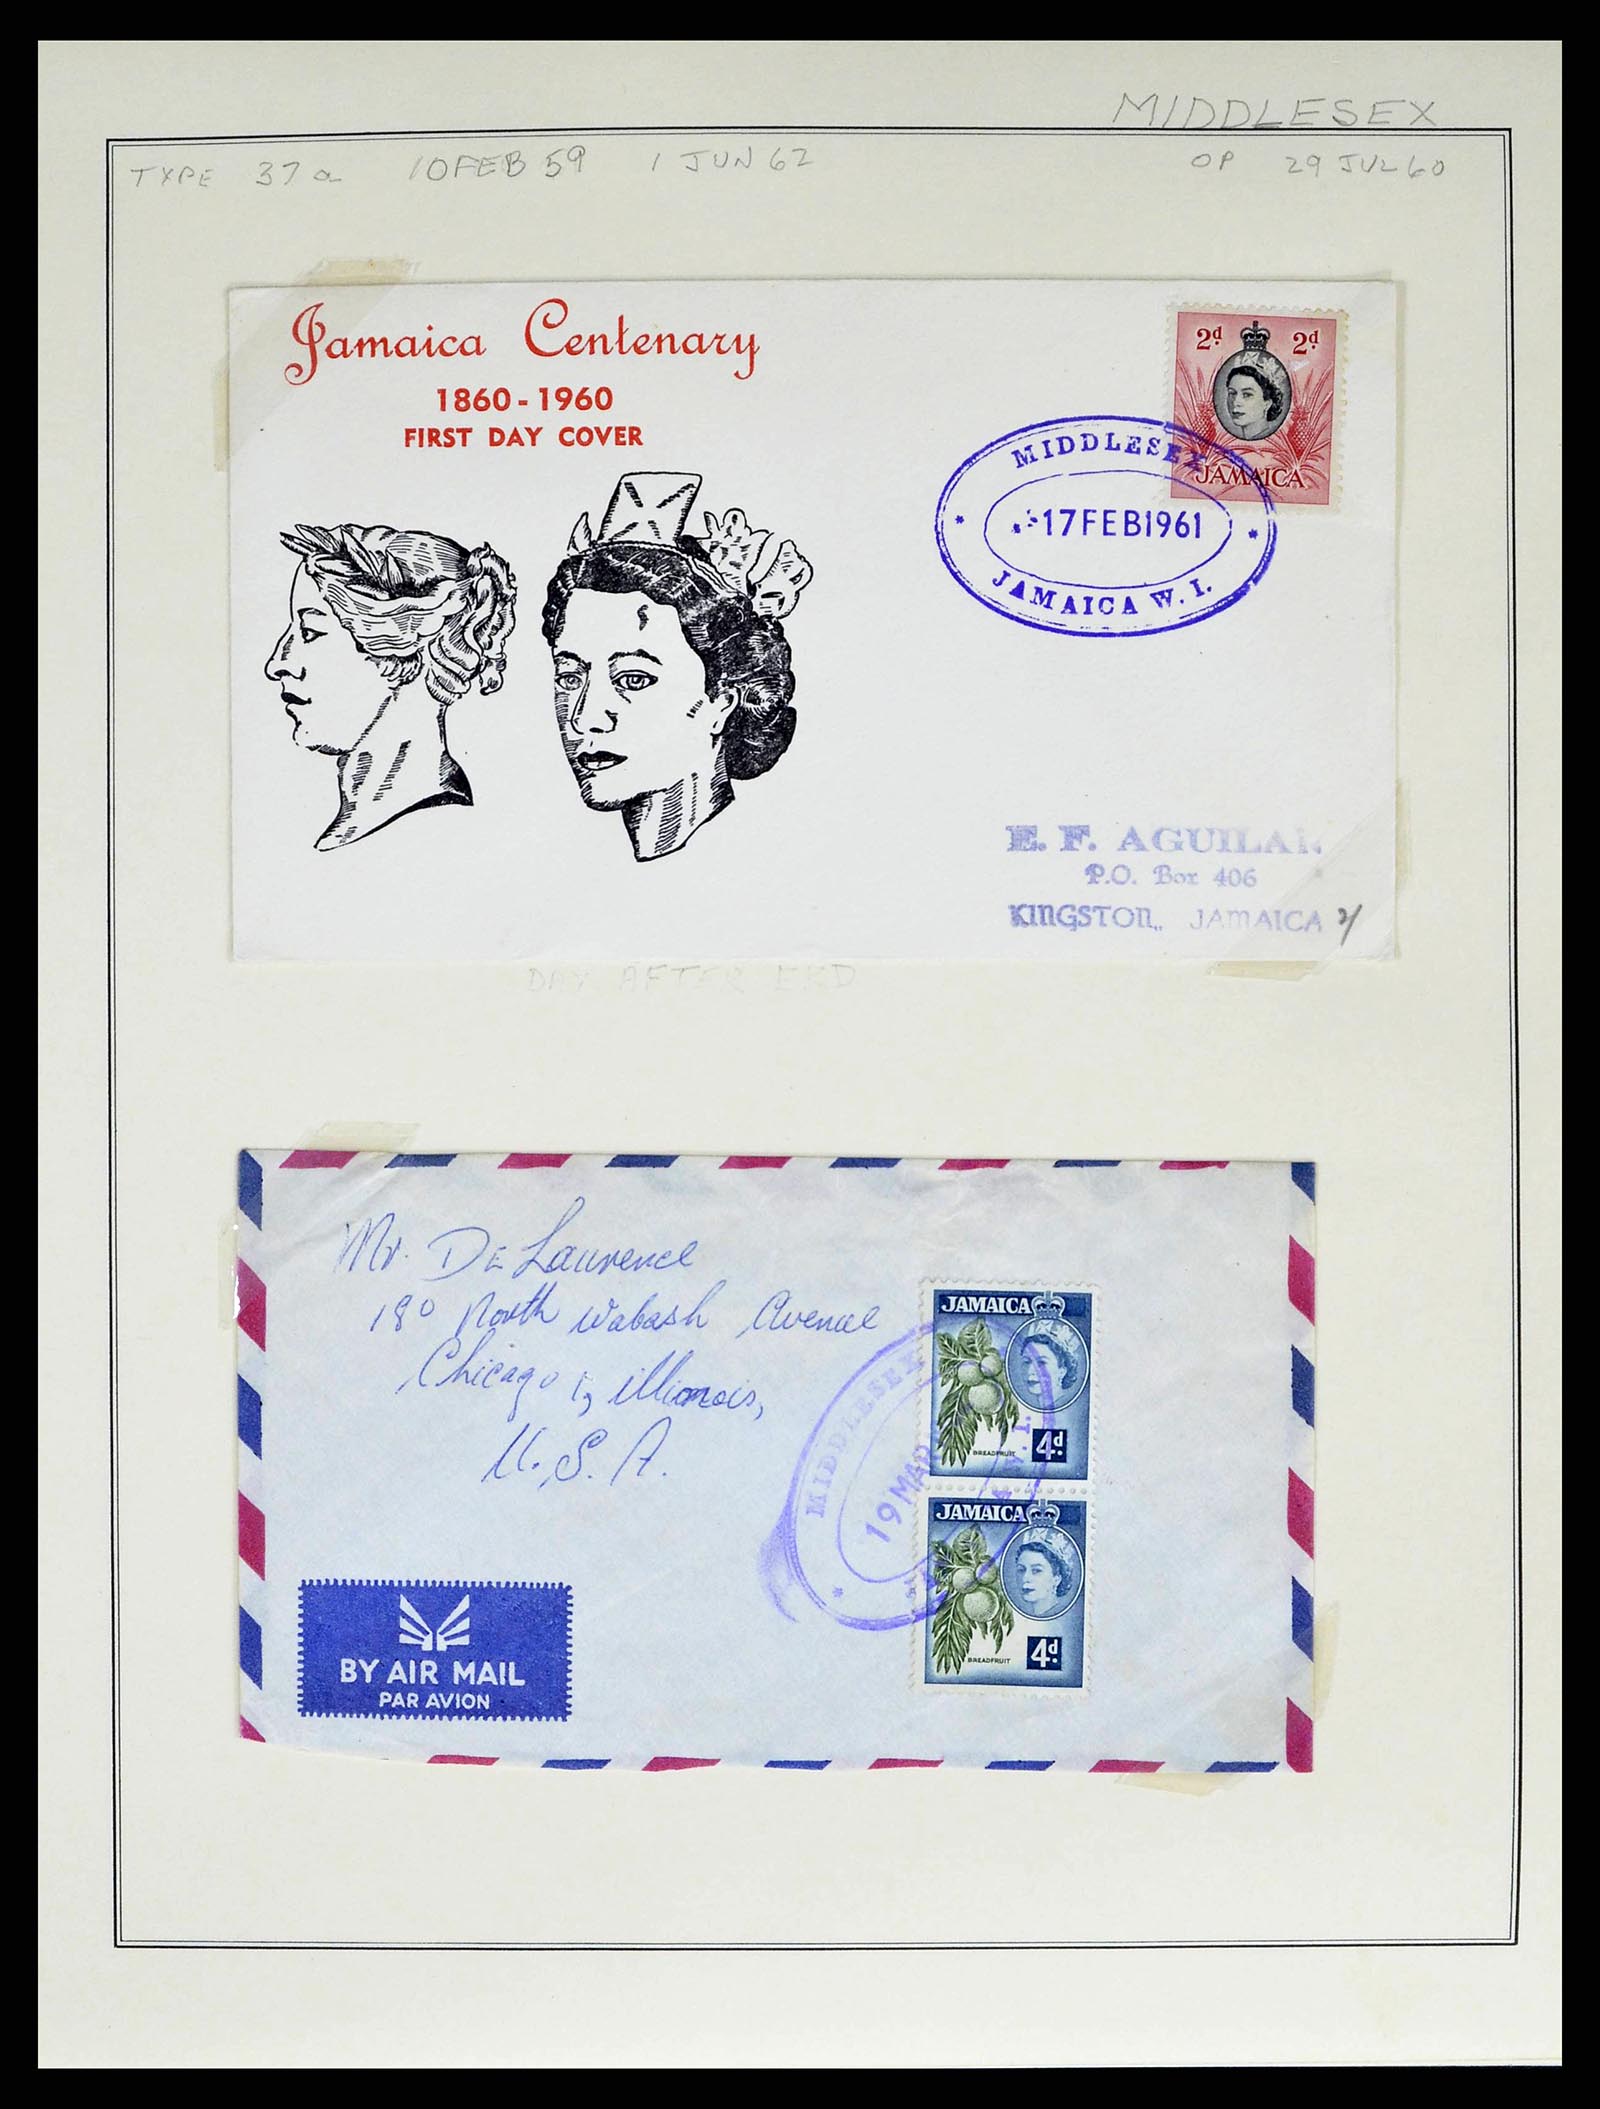 MIDDLESEX
TYPE 37a 10 FEB 59 1 JUN 62 OP 29 JUL 60
Jamaica Centenary
1860 - 1960
FIRST DAY COVER
2d 2d
JAMAICA
MIDDLESEX
17 FEB 1961
JAMAICA W. I.
E. F. AGUILAR
P.O. Box 406
KINGSTON, JAMAICA
DAY AFTER ERD
Mr. De Laurence
180 North Wabash Avenue
Chicago 1, illinois,
U. S. A.
JAMAICA
BREADFRUIT
4d.
JAMAICA
BREADFRUIT
4d.
MIDDLESEX
19 MAR
W. I.
BY AIR MAIL
PAR AVION